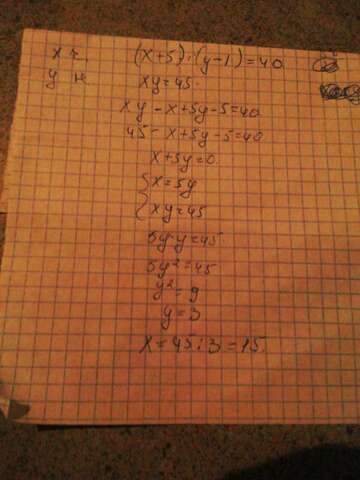 x г. (x+5)·(y-1)=40
y н xy=45
xy-x+5y-5=40
45-x+5y-5=40
x+5y=0
x=5y
xy=45
5y·y=45
5y²=45
y²=9
y=3
x=45:3=15